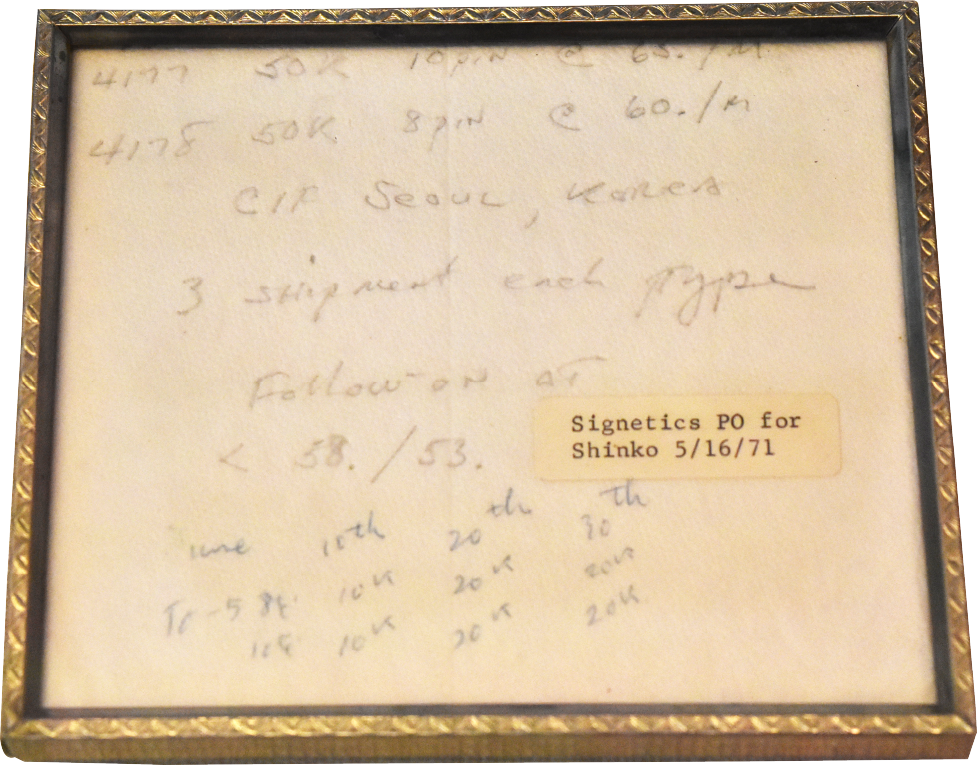 4177 50K 10 pin @ 65./M
4178 50K 8 pin @ 60./M
CIF Seoul, Korea
3 shipment each type
Follow-on at
< 58./53.
Signetics PO for
Shinko 5/16/71
June 10th 20th 30th
TO-5 8 10K 20K 20K
10 10K 20K 20K